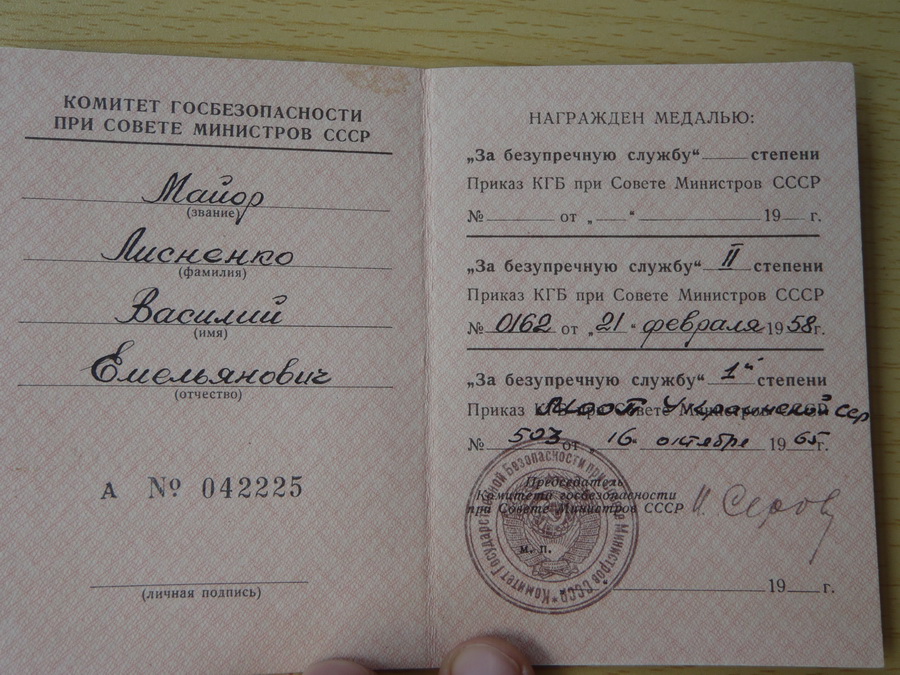 КОМИТЕТ ГОСБЕЗОПАСНОСТИ
ПРИ СОВЕТЕ МИНИСТРОВ СССР
Майор
(звание)
Лисненко
(фамилия)
Василий
(имя)
Емельянович
(отчество)
А № 042225
(личная подпись)
НАГРАЖДЕН МЕДАЛЬЮ:
„За безупречную службу“ степени
Приказ КГБ при Совете Министров СССР
№ от „ “ 19 г.
„За безупречную службу“ II степени
Приказ КГБ при Совете Министров СССР
№ 0162 от „21“ февраля 1958 г.
„За безупречную службу“ 1й степени
Приказ КГБ при Совете Министров СССР
МООП Украинской ССР
№ 503 от „16“ октября 1965 г.
Председатель
Комитета госбезопасности
при Совете Министров СССР И. Серов
м. п.
19 г.
Комитет Государственной Безопасности при Совете Министров СССР